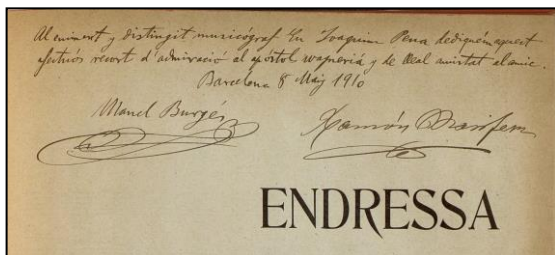 Al eminent y distingit musicograf En Joaquim Pena dediquém aquest
afectuós recort d'admiració al apóstol wagneriá y de lleal amistat al amic.
Barcelona 8 Maig 1910
Manel Burgés
Ramón
ENDRESSA